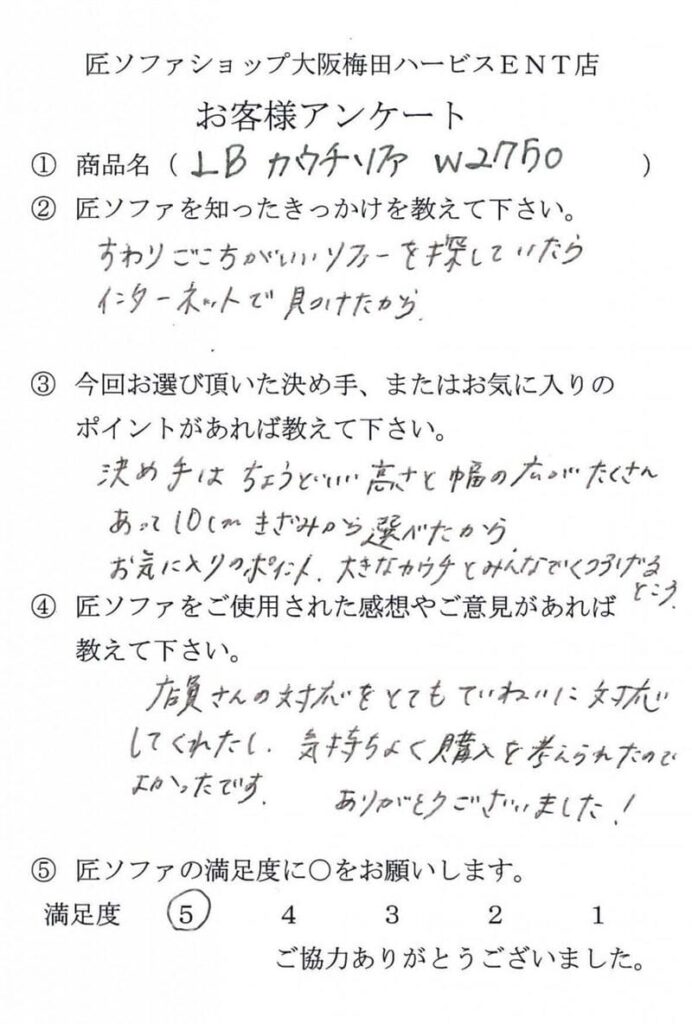 匠ソファショップ大阪梅田ハービスＥＮＴ店
お客様アンケート
① 商品名（ LB カウチソファ W2750 ）
② 匠ソファを知ったきっかけを教えて下さい。
すわりごこちがいいソファーを探していたら
インターネットで見つけたから.
③ 今回お選び頂いた決め手、またはお気に入りの
ポイントがあれば教えて下さい。
決め手は ちょうどいい高さと幅の広がたくさん
あって10cmきざみから選べたから.
お気に入りのポイント. 大きなカウチとみんなでくつろげる
ところ.
④ 匠ソファをご使用された感想やご意見があれば
教えて下さい。
店員さんの対応をとてもていねいに対応
してくれたし. 気持ちよく購入を考えられたので
よかったです. ありがとうございました！
⑤ 匠ソファの満足度に〇をお願いします。
満足度 ５ ４ ３ ２ １
ご協力ありがとうございました。